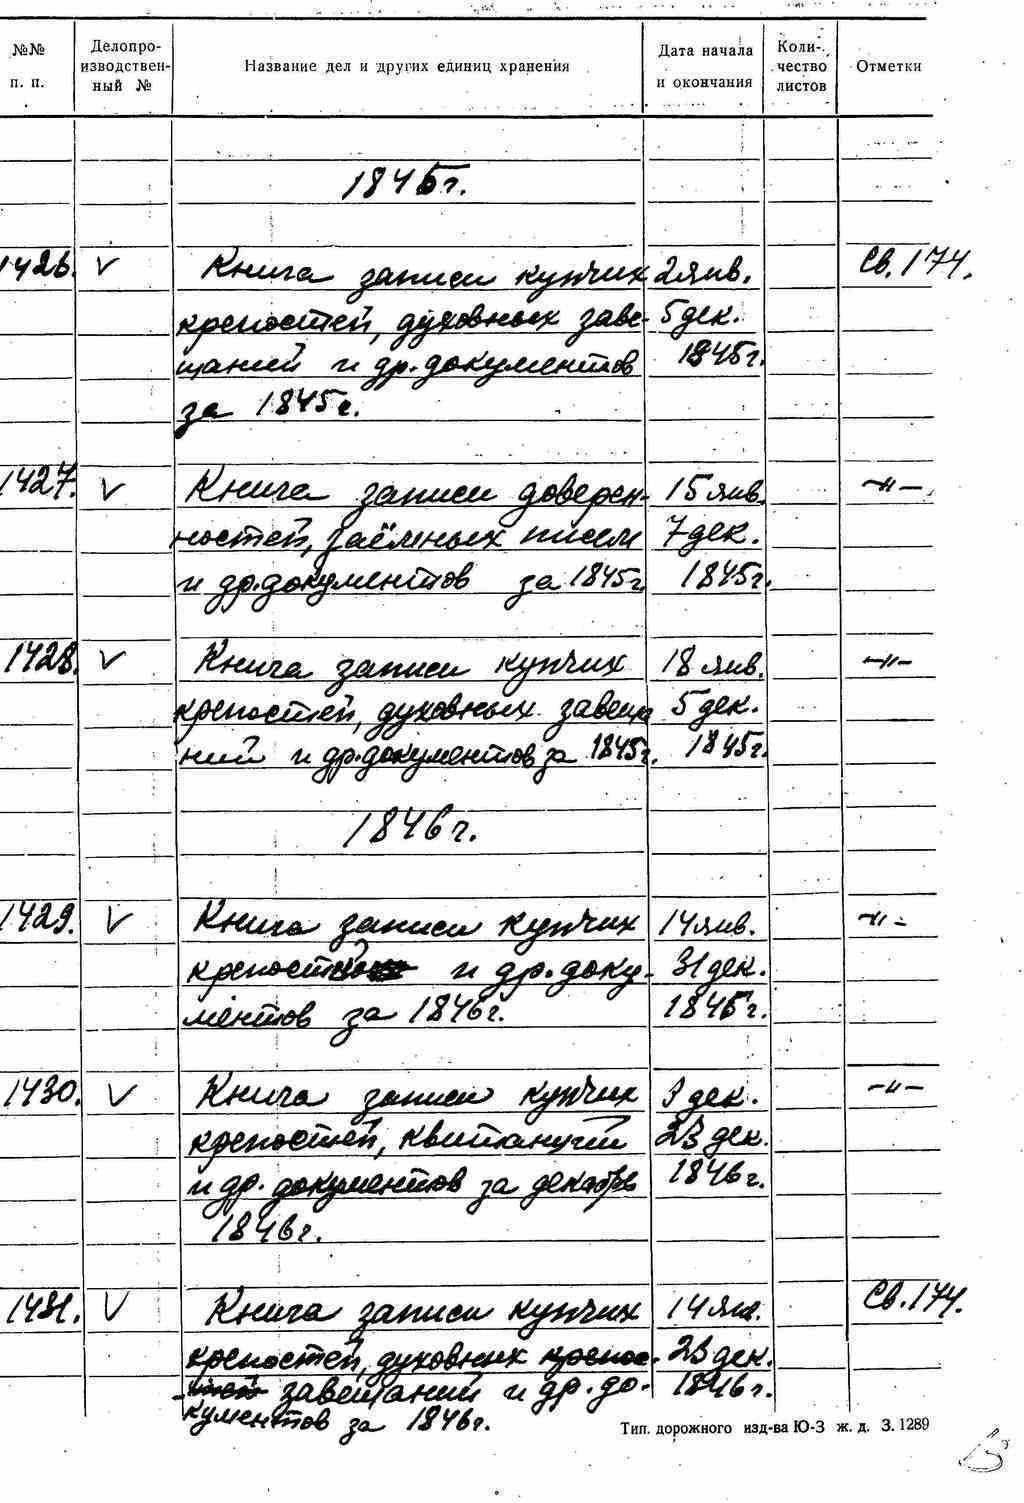 №№ п. п. Делопроизводственный № Название дел и других единиц хранения Дата начала и окончания Количество листов Отметки
1845г.
1426. V Книга записи купчих 2 янв. Св. 174.
крепостей, духовных заве- 5 дек.
щаний и др. документов 1845г.
за 1845г.
1427. V Книга записи доверен- 15 янв. -"-
ностей, заёмных писем 7 дек.
и др. документов за 1845г. 1845г.
1428. V Книга записи купчих 18 янв. -"-
крепостей, духовных завеща 5 дек.
ний и др. документов за 1845г. 1845г.
1846г.
1429. V Книга записи купчих 14 янв. -"-
крепостей и др. доку- 31 дек.
ментов за 1846г. 1845г.
1430. V Книга записи купчих 3 дек. -"-
крепостей, квитанций 23 дек.
и др. документов за декабрь 1846г.
1846г.
1431. V Книга записи купчих 14 янв. Св. 174.
крепостей, духовных крепос- 23 дек.
тей завещаний и др. до- 1846г.
кументов за 1846г.
Тип. дорожного изд-ва Ю-З ж. д. З. 1289